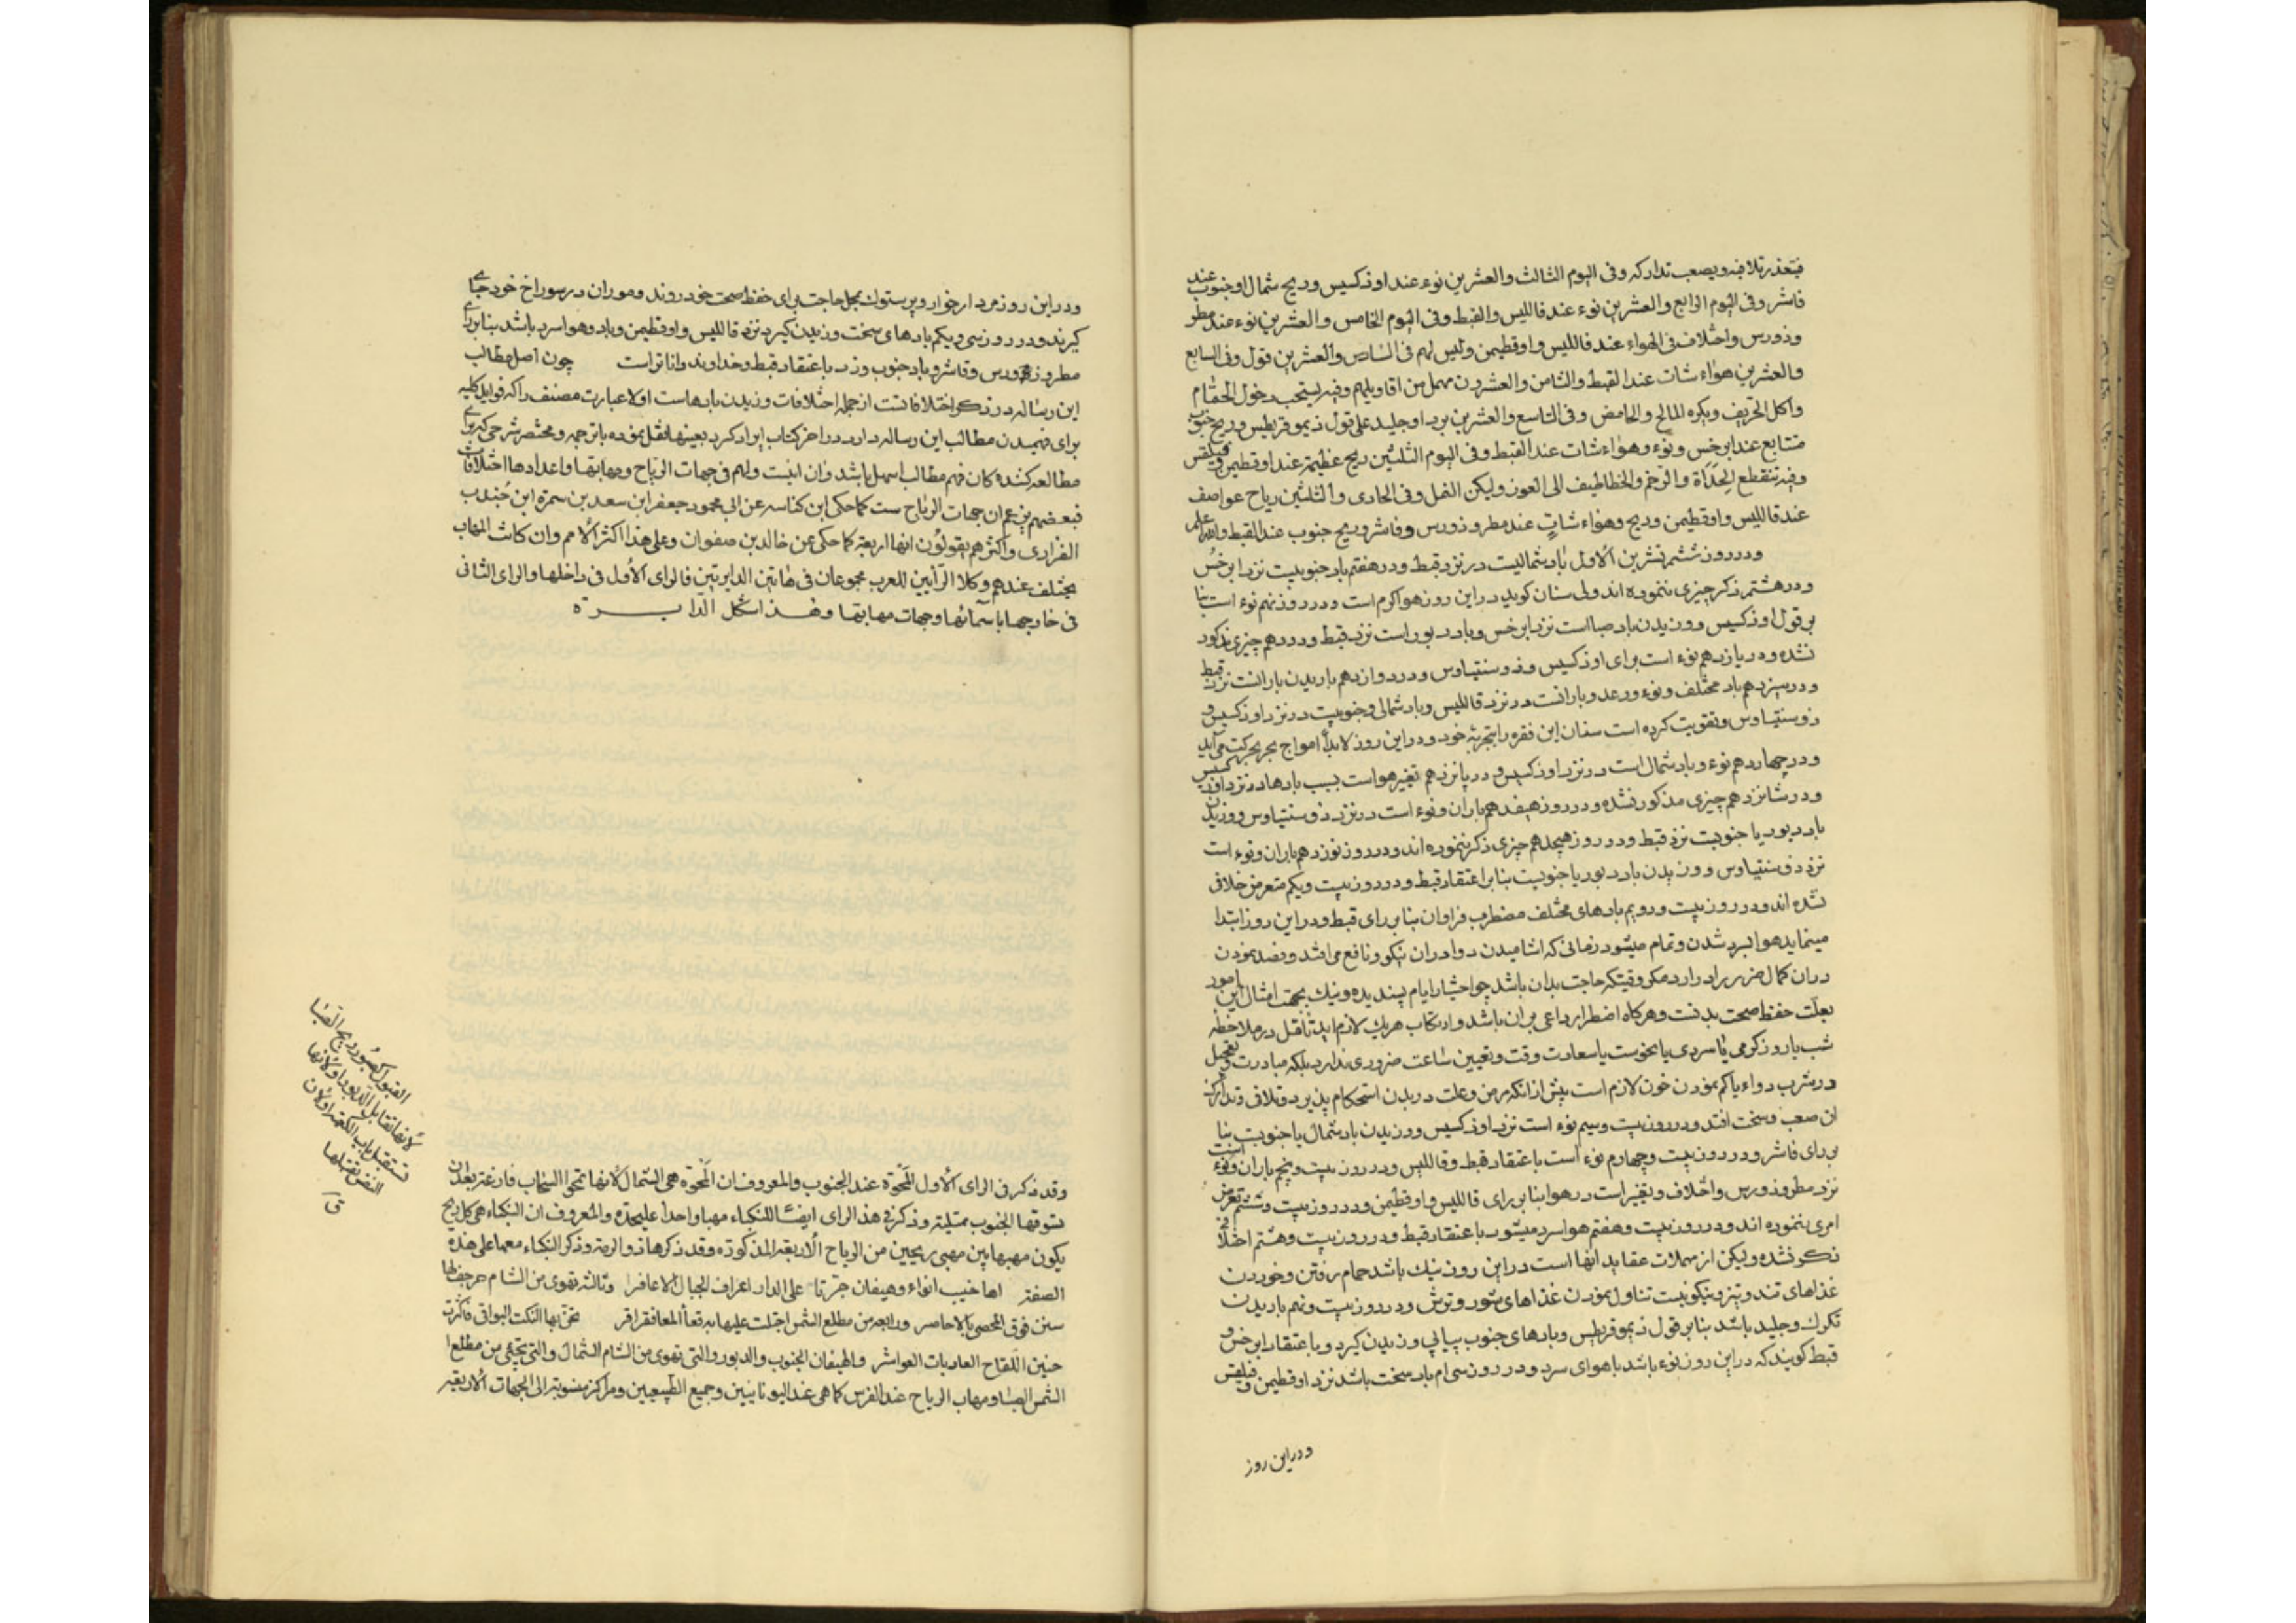 فیتعذر تلافیه ویصعب تدارکه وفی الیوم الثالث والعشرین نوء عند اوذکسیس وریح شمال او جنوب عند
قاشر وفی الیوم الرابع والعشرین نوء عند قاللیس والقبط وفی الیوم الخامس والعشرین نوء عند مطر
وذورس واختلاف فی الهواء عند قاللیس واوقطیمن ولیس لهم فی السادس والعشرین قول وفی السابع
والعشرین هواء شات عند القبط والثامن والعشرون مهمل من اقاویلهم وفیه یستحب دخول الحمام
واکل الحریف ویکره المالح والحامض وفی التاسع والعشرین برد او جلید علی قول ذیموقریطیس وریح جنوب
متتابع عند ابرخس ونوء وهواء شات عند القبط وفی الیوم الثلثین ریح عظیمة عند اوقطیمن وفیلفس
وفیه تنقطع الحدأة والرخم والخطاطیف الی الغور ولیکن النمل وفی الحادی والثلثین ریاح عواصف
عند قاللیس واوقطیمن وریح وهواء شاتٍ عند مطروذورس وقاشر وریح جنوب عند القبط والله اعلم
ودر روز ششم تشرین الاول باد شمالیست در نزد قبط ودر هفتم باد جنوبیست نزد ابرخس
ودر هشتم ذکر چیزی ننموده اند ولی سنان کوید در این روز هوا کرم است ودر روز نهم نوء است بنا
بر قول اوذکسیس ووزیدن باد صبا است نزد ابرخس وباد دبور است نزد قبط ودر دهم چیزی مذکور
نشده ودر یازدهم نوء است برای اوذکسیس وذوسنتیاوس ودر دوازدهم باریدن بارانست نزد قبط
ودر سیزدهم باد مختلف ونوء ورعد وبارانست در نزد قاللیس وباد شمالی وجنوبیست در نزد اوذکسیس و
ذوسنتیاوس وتقویت کرده است سنان این فقره را بتجربه خود ودر این روز لابداً امواج بحر بحرکت می آید
ودر چهاردهم نوء وباد شمال است در نزد اوذکسیس ودر پانزدهم تغیر هواست بسبب بادها در نزد اوذکسیس
ودر شانزدهم چیزی مذکور نشده ودر روز هیفدهم باران ونوء است در نزد ذوسنتیاوس ووزیدن
باد دبور یا جنوبست نزد قبط ودر روز هیجدهم چیزی ذکر ننموده اند ودر روز نوزدهم باران ونوء است
نزد ذوسنتیاوس ووزیدن باد دبور یا جنوبست بنا بر اعتقاد قبط ودر روز بیست ویکم متعرض خلافی
نشده اند ودر روز بیست ودویم بادهای مختلف مضطرب فراوان بنا بر رای قبط ودر این روز ابتدا
مینماید هوا بسرد شدن وتمام میشود زمانی که اشامیدن دوا در ان نیکو ونافع می افتد وفصد نمودن
در ان کمال ضرر را دارد مکر وقتیکه حاجت بدان باشد چو اختیار ایام پسندیده ونیک بجهت امثال این امور
بعلت حفظ صحت بدنست وهرکاه اضطرار داعی بر ان باشد وارتکاب هریک لازم اید تأمل در ملاحظه
شب یا روز کرمی یا سردی یا نحوست یا سعادت وقت وتعیین ساعت ضروری ندارد بلکه مبادرت وتعجیل
در شرب دواء یا کم نمودن خون لازم است پیش از انکه مرض وعلت در بدن استحکام پذیرد وتلافی وتدارک
ان صعب وسخت افتد ودر روز بیست وسیم نوء است نزد اوذکسیس ووزیدن باد شمال یا جنوبست بنا
بر رای قاشر ودر روز بیست وچهارم نوء است باعتقاد قبط وقاللیس ودر روز بیست وپنجم باران ونوء است
نزد مطروذورس واختلاف وتغییر است در هوا بنا بر رای قاللیس واوقطیمن ودر روز بیست وششم تعرض
امری ننموده اند ودر روز بیست وهفتم هوا سرد میشود باعتقاد قبط ودر روز بیست وهشتم اختلافی
ذکر نشده ولیکن از مهملات عقاید انها است در این روز نیک باشد حمام رفتن وخوردن
غذاهای تند وتیز ونیکو نیست تناول نمودن غذاهای شور وترش ودر روز بیست ونهم باریدن
تکرک وجلید باشد بنا بر قول ذیموقریطیس وبادهای جنوب پیاپی وزیدن کیرد وباعتقاد ابرخس و
قبط کویند که در این روز نوء باشد با هوای سرد ودر روز سی ام باد سخت باشد نزد اوقطیمن وفیلفس
ودر این روز
ودر این روز مردار خوار وپرستوک بمحل حاجت برای حفظ صحت خود روند وموران در سوراخ خود جای
کیرند ودر روز سی ویکم بادهای سخت وزیدن کیرد نزد قاللیس واوقطیمن وباد وهوا سرد باشد بنا برای
مطروذورس وقاشر وباد جنوب وزد باعتقاد قبط وخداوند داناتر است چون اصل مطالب
این رساله در ذکر اختلافاتست از جمله اختلافات وزیدن بادهاست اولا عبارت مصنف را که فواید کلیه
برای فهمیدن مطالب این رساله دارد در اخر کتاب ایراد کرد بعینها نقل نموده با ترجمه ومختصر شرحی که برای
مطالعه کننده کان فهم مطالب اسهل باشد وان اینست ولهم فی جهات الریاح ومهابتها واعدادها اختلافات
فبعضهم یزعم ان جهات الریاح ست کما حکی ابن کناسه عن ابی محمود جعفر ابن سعد بن سمرة ابن جندب
الفزاری واکثرهم یقولون انها اربعة کما حکی عن خالد بن صفوان وعلی هذا اکثر الامم وان کانت المهاب
یختلف عندهم وکلا الرأیین للعرب مجموعان فی هاتین الدایرتین فالرای الاول فی داخلها والرای الثانی
فی خارجها باسمائها وجهات مهابتها وهذا شکل الدایرة
وقد ذکر فی الرای الاول المحوة عند الجنوب والمعروف ان المحوة هی الشمال لانها تمحوا السحاب فارغة بعد ان
تسوقها الجنوب ممتلیة وذکر فی هذا الرای ایضاً للنکباء مهبا واحدا علیحده والمعروف ان النکباء هی کل ریح
یکون مهبها بین مهبی ریحین من الریاح الاربعة المذکورة وقد ذکرها ذو الرمة وذکر النکباء معها علی هذه
الصفة اهاضیب انواء وهیفان جرتا علی الدار اعراف الجبال الاعافر وثالثة تهوی من الشام حرجف لها
سنن فوق الحصی بالاعاصر ورابعة من مطلع الشمس اجفلت علیها بدقعاء المعا فقراقر تحن بها النکت البواقی فاکثرت
حنین اللقاح العادیات العواشر والهیفان الجنوب والدبور والتی تهوی من الشام الشمال والتی تجئی من مطلع
الشمس الصبا ومهاب الریاح عند الفرس کما هی عند الیونانیین وجمیع الطبیعیین ومراکز منسوبة الی الجهات الاربعة
القبول کصبور ریح الصبا
لانها تقابل الدبور او لانها
تستقبل باب الکعبة او لان
النفس تقبلها
ق